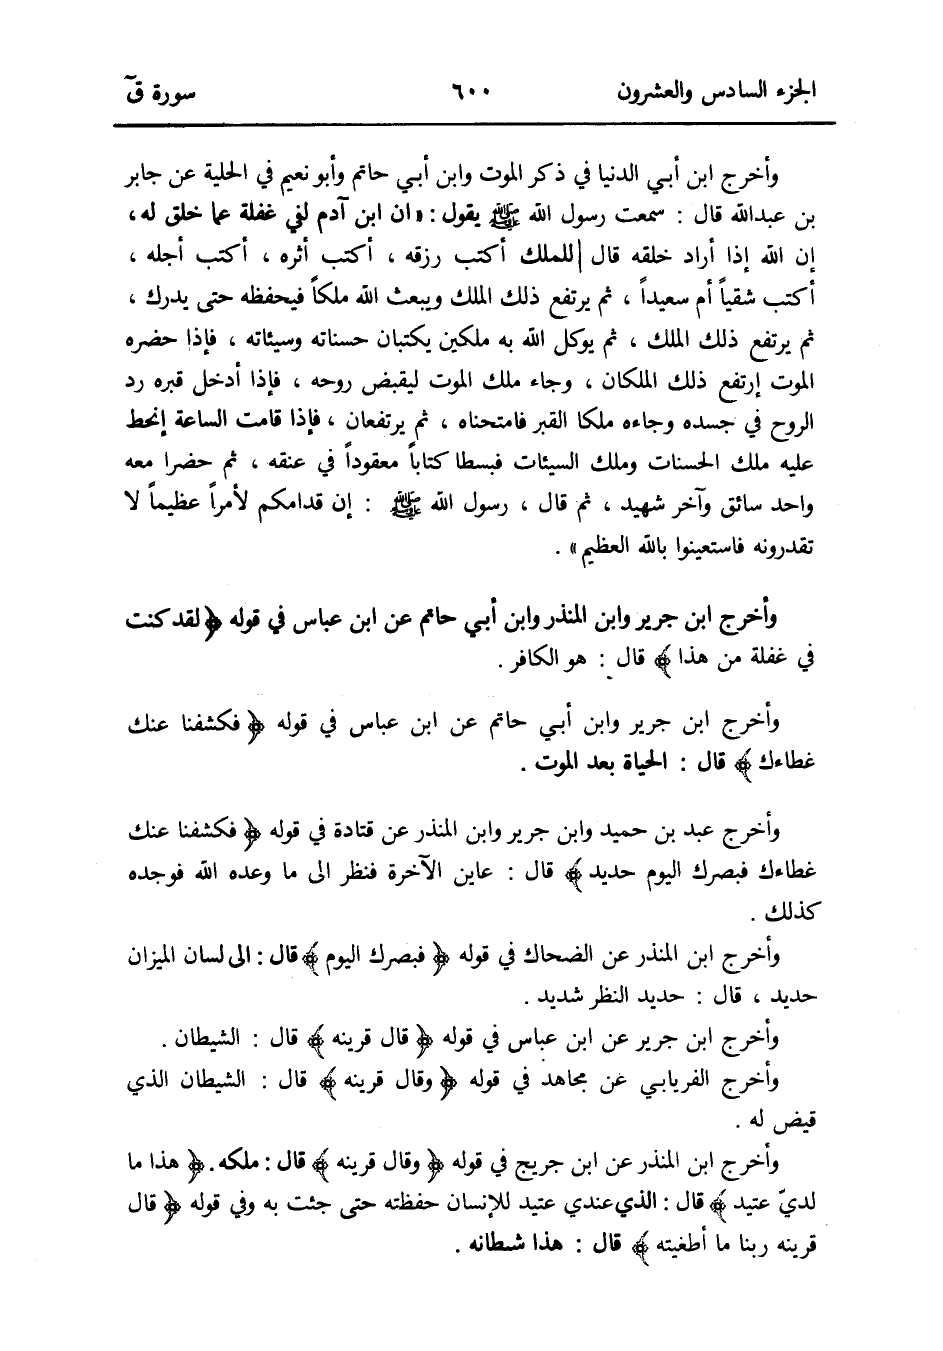 الجزء السادس والعشرون ٦٠٠ سورة قٓ
وأخرج ابن أبي الدنيا في ذكر الموت وابن أبي حاتم وأبو نعيم في الحلية عن جابر
بن عبدالله قال : سمعت رسول الله ﷺ يقول : «ان ابن آدم لفي غفلة عما خلق له ،
إن الله إذا أراد خلقه قال للملك أكتب رزقه ، أكتب أثره ، أكتب أجله ،
أكتب شقياً أم سعيداً ، ثم يرتفع ذلك الملك ويبعث الله ملكاً فيحفظه حتى يدرك ،
ثم يرتفع ذلك الملك ، ثم يوكل الله به ملكين يكتبان حسناته وسيئاته ، فإذا حضره
الموت إرتفع ذلك الملكان ، وجاء ملك الموت ليقبض روحه ، فإذا أدخل قبره رد
الروح في جسده وجاءه ملكا القبر فامتحناه ، ثم يرتفعان ، فإذا قامت الساعة إنحط
عليه ملك الحسنات وملك السيئات فبسطا كتاباً معقوداً في عنقه ، ثم حضرا معه
واحد سائق وآخر شهيد ، ثم قال ، رسول الله ﷺ : إن قدامكم لأمراً عظيماً لا
تقدرونه فاستعينوا بالله العظيم» .
وأخرج ابن جرير وابن المنذر وابن أبي حاتم عن ابن عباس في قوله ﴿ لقد كنت
في غفلة من هذا ﴾ قال : هو الكافر .
وأخرج ابن جرير وابن أبي حاتم عن ابن عباس في قوله ﴿ فكشفنا عنك
غطاءك ﴾ قال : الحياة بعد الموت .
وأخرج عبد بن حميد وابن جرير وابن المنذر عن قتادة في قوله ﴿ فكشفنا عنك
غطاءك فبصرك اليوم حديد ﴾ قال : عاين الآخرة فنظر الى ما وعده الله فوجده
كذلك .
وأخرج ابن المنذر عن الضحاك في قوله ﴿ فبصرك اليوم ﴾ قال : الى لسان الميزان
حديد ، قال : حديد النظر شديد .
وأخرج ابن جرير عن ابن عباس في قوله ﴿ قال قرينه ﴾ قال : الشيطان .
وأخرج الفريابي عن مجاهد في قوله ﴿ وقال قرينه ﴾ قال : الشيطان الذي
قيض له .
وأخرج ابن المنذر عن ابن جريج في قوله ﴿ وقال قرينه ﴾ قال : ملكه . ﴿ هذا ما
لديّ عتيد ﴾ قال : الذي عندي عتيد للإنسان حفظته حتى جئت به وفي قوله ﴿ قال
قرينه ربنا ما أطغيته ﴾ قال : هذا شطانه .